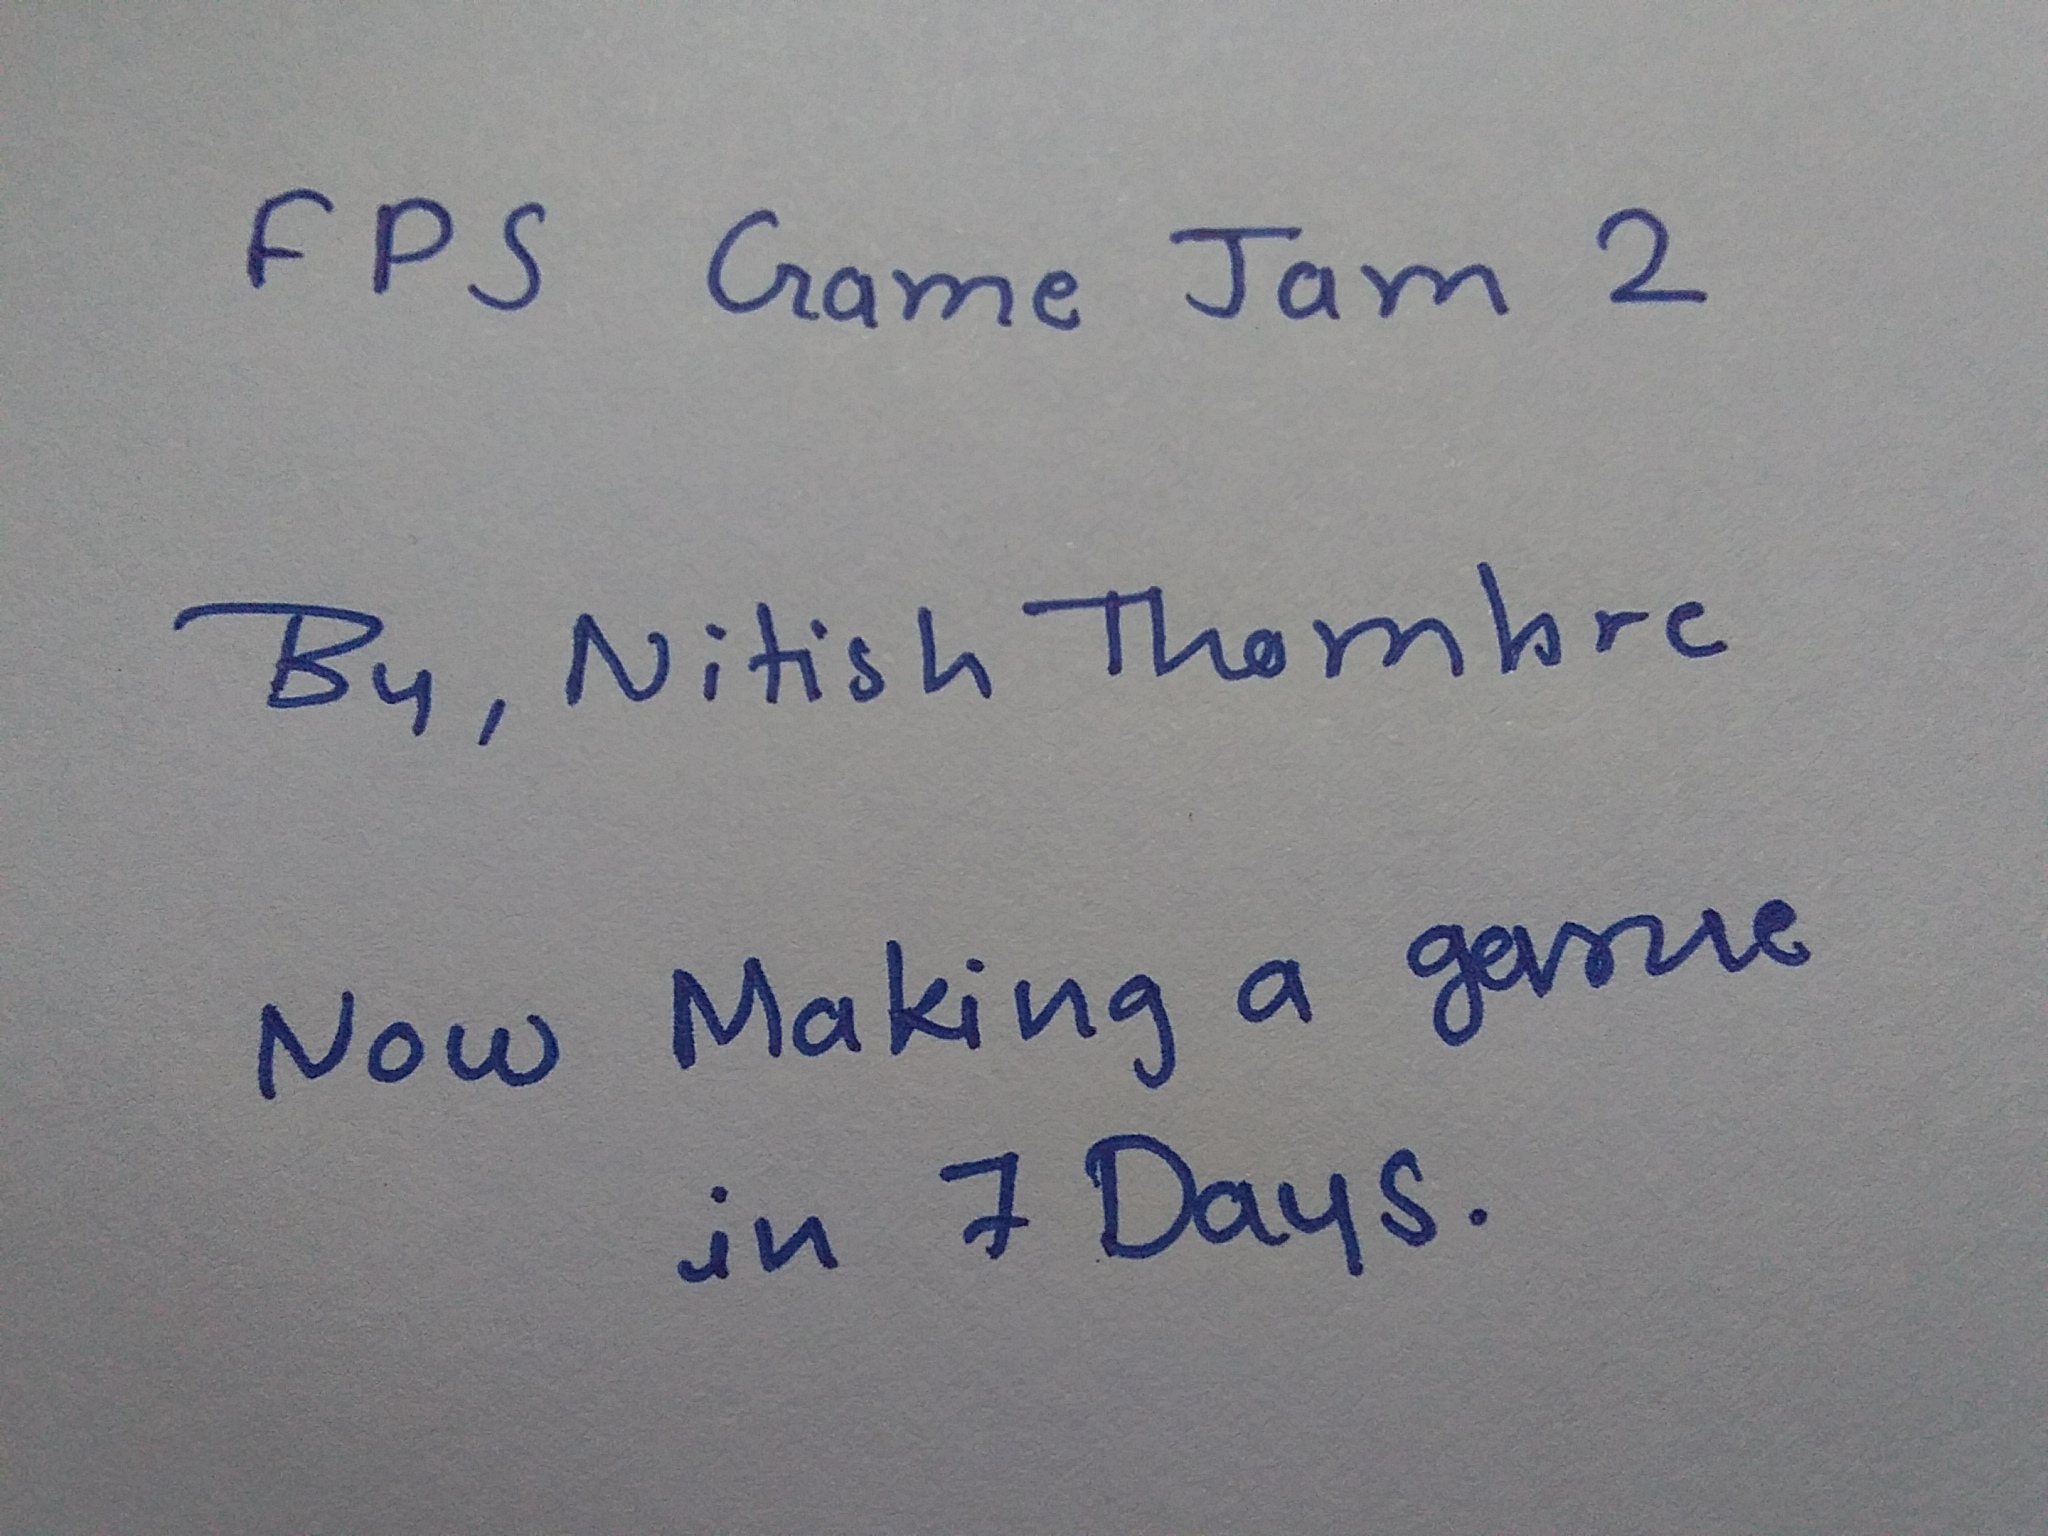 FPS Game Jam 2
By, Nitish Thombre
Now Making a game
in 7 Days.